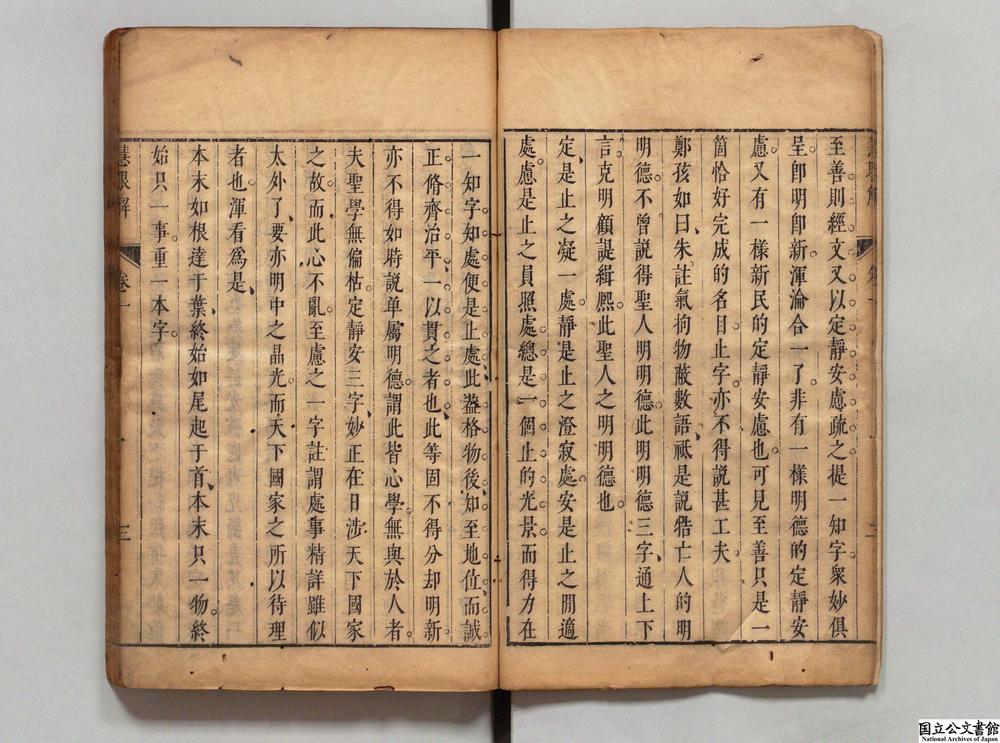 至善則經文又以定靜安慮疏之提一知字衆妙俱
呈卽明卽新渾淪合一了非有一樣明德的定靜安
慮又有一樣新民的定靜安慮也可見至善只是一
箇恰好完成的名目止字亦不得説甚工夫
鄭孩如曰朱註氣拘物蔽數語祇是説牿亡人的明
明德不曾説得聖人明明德此明明德三字通上下
言克明顧諟緝熈此聖人之明明德也
定是止之凝一處靜是止之澄寂處安是止之閒適
處慮是止之員照處總是一個止的光景而得力在
一知字知處便是止處此葢格物後知至地位而誠
正脩齊治平一以貫之者也此等固不得分却明新
亦不得如時説单屬明德謂此皆心學無與於人者
夫聖學無偏枯定靜安三字妙正在日涉天下國家
之故而此心不亂至慮之一字註謂處事精詳雖似
太外了要亦明中之晶光而天下國家之所以待理
者也渾看爲是
本末如根達于葉終始如尾起于首本末只一物終
始只一事重一本字
慧眼解
卷一
三
国立公文書館
National Archives of Japan